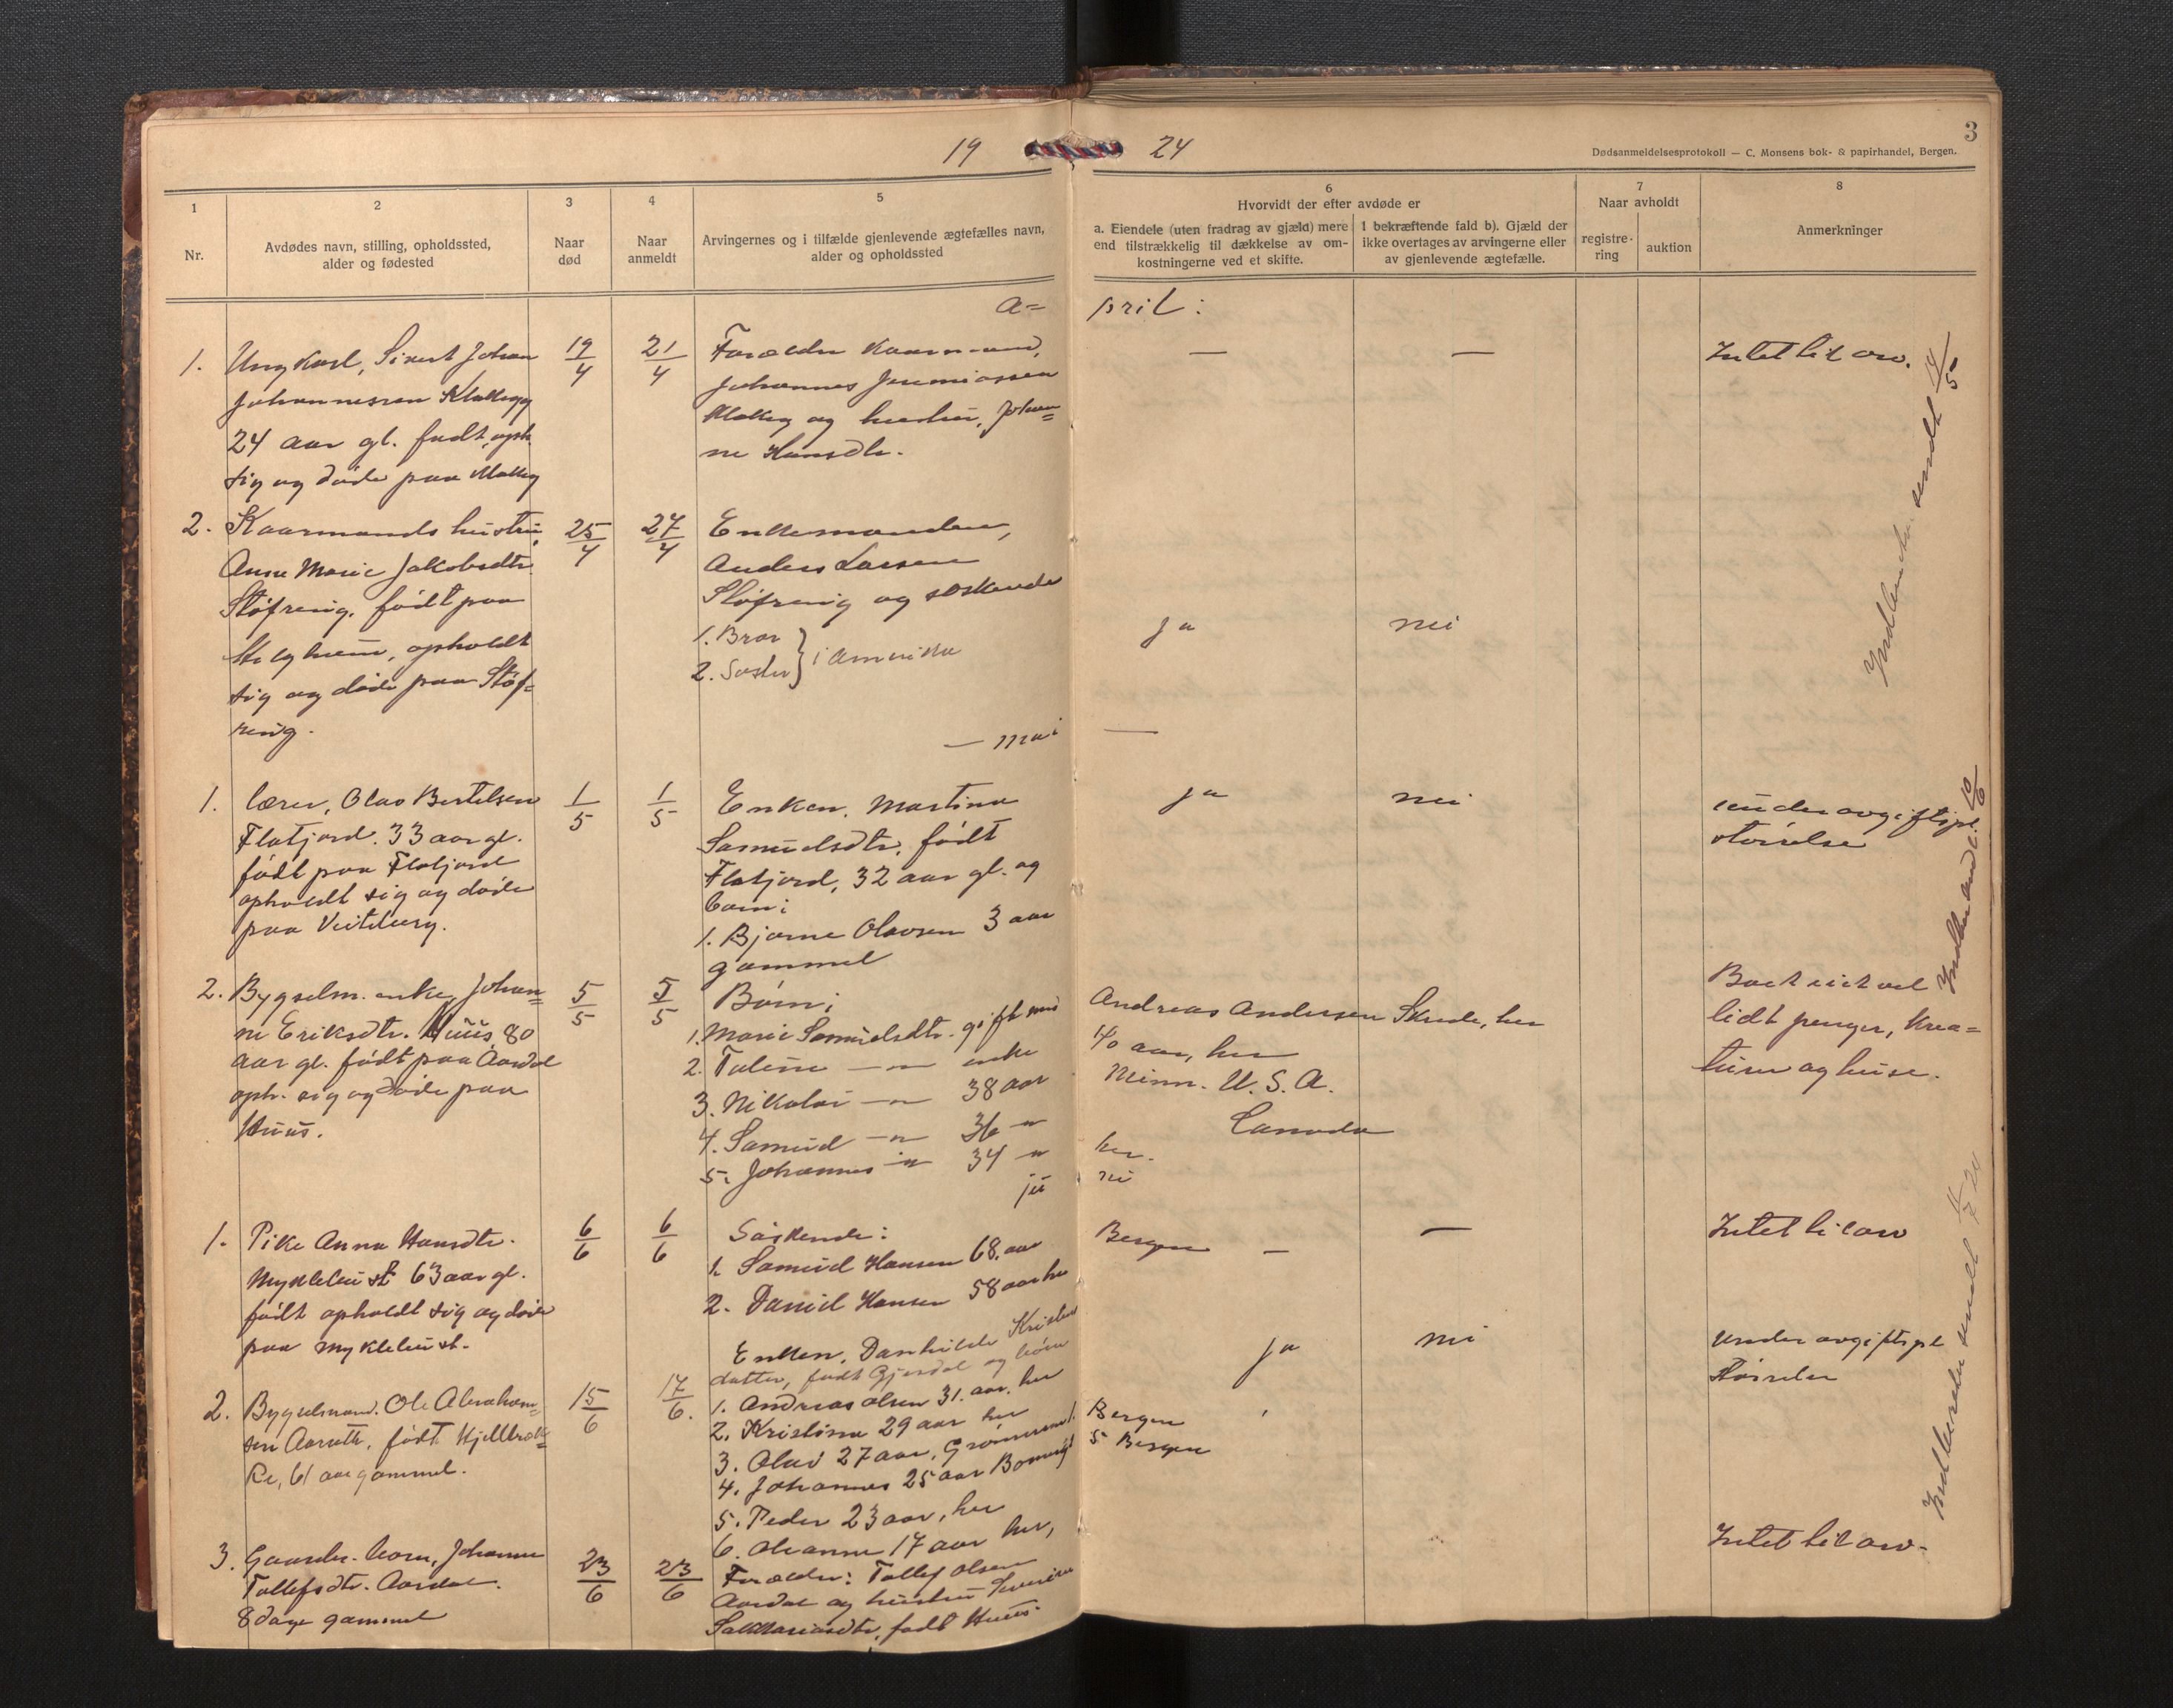 19 24
3
Dødsanmeldelsesprotokoll — C. Monsens bok- & papirhandel, Bergen.
1
Nr.
2
Avdødes navn, stilling, opholdssted,
alder og fødested
3
Naar
død
4
Naar
anmeldt
5
Arvingernes og i tilfælde gjenlevende ægtefælles navn,
alder og opholdssted
6
Hvorvidt der efter avdøde er
a. Eiendele (uten fradrag av gjæld) mere
end tilstrækkelig til dækkelse av om-
kostningerne ved et skifte.
I bekræftende fald b). Gjæld der
ikke overtages av arvingerne eller
av gjenlevende ægtefælle.
7
Naar avholdt
registre-
ring
auktion
8
Anmerkninger
A= pril:
1.
Ungkarl, Sivert Johan
Johannessen Klakegg
24 aar gl. født, oph.
sig og døde paa Klakeg
19/4
21/4
Forældre Kaarmand,
Johannes Jeremiassen
Klakeg og hustru, Johan=
ne Hansdtr.
—
—
Intet til arv.
2.
Kaarmands hustru,
Anne Marie Jakobsdtr.
Støfring, født paa
opholdt
sig og døde paa Støf=
ring.
25/4
27/4
Enkemanden,
Anders Larsen
Støfring og søskende
1. Bror
2. Søster } i Amerika
ja
nei
Indberetn. sendt 14/5
— mai —
1.
Lærer, Olav Bertelsen
Flatjord. 33 aar gl.
født paa Flatjord
opholdt sig og døde
paa
1/5
1/5
Enken, Martina
Samuelsdtr, født
Flatjord, 32 aar gl. og
barn:
1. Bjarne Olavsen 3 aar
gammel
ja
nei
under avgiftspl.
størrelse
2.
Bygselm. enke, Johan=
ne Eriksdtr. Huus, 80
aar gl. født paa Aardal
oph. sig og døde paa
Huus.
5/5
5/5
Børn:
1. Marie Samuelsdtr. gift med Andreas Andersen Skrede, her
2. Taline — " — enke 40 aar, her
3. Nikolai — " — 38 aar Minn. U. S. A.
4. Samuel — " — 36 — " Canada
5. Johannes — " — 34 — " her.
lidt penger, krea=
turer og huse.
10/6
ju ni
1.
Pike Anna Hansdtr.
Myklebust 63 aar gl.
født opholdt sig og døde
paa Myklebust.
6/6
6/6
Søskende:
1. Samuel Hansen 68 aar Bergen
2. Daniel Hansen 58 aar her
—
—
Intet til arv
2.
Bygselmand. Ole Abraham=
sen født
61 aar gammel.
15/6
17/6.
Enken, Danhilde Kristens
datter, født Gjerdal og børn
1. Andreas Olsen 31. aar. her
2. Kristina 29 aar her
3. Olai 27 aar, Bergen
4. Johannes 25 aar Bergen
5. Peder 23 aar, her
6. Oleanne 17 aar her,
ja
nei
under avgiftspl
størrelse
3.
Gaardbr. barn, Johanne
Tollefsdtr. Aardal.
8 dage gammel
23/6
23/6
Forældre: Tollef Olsen
Aardal og hustru
født Huus.
Intet til arv.
Indberetn. sendt